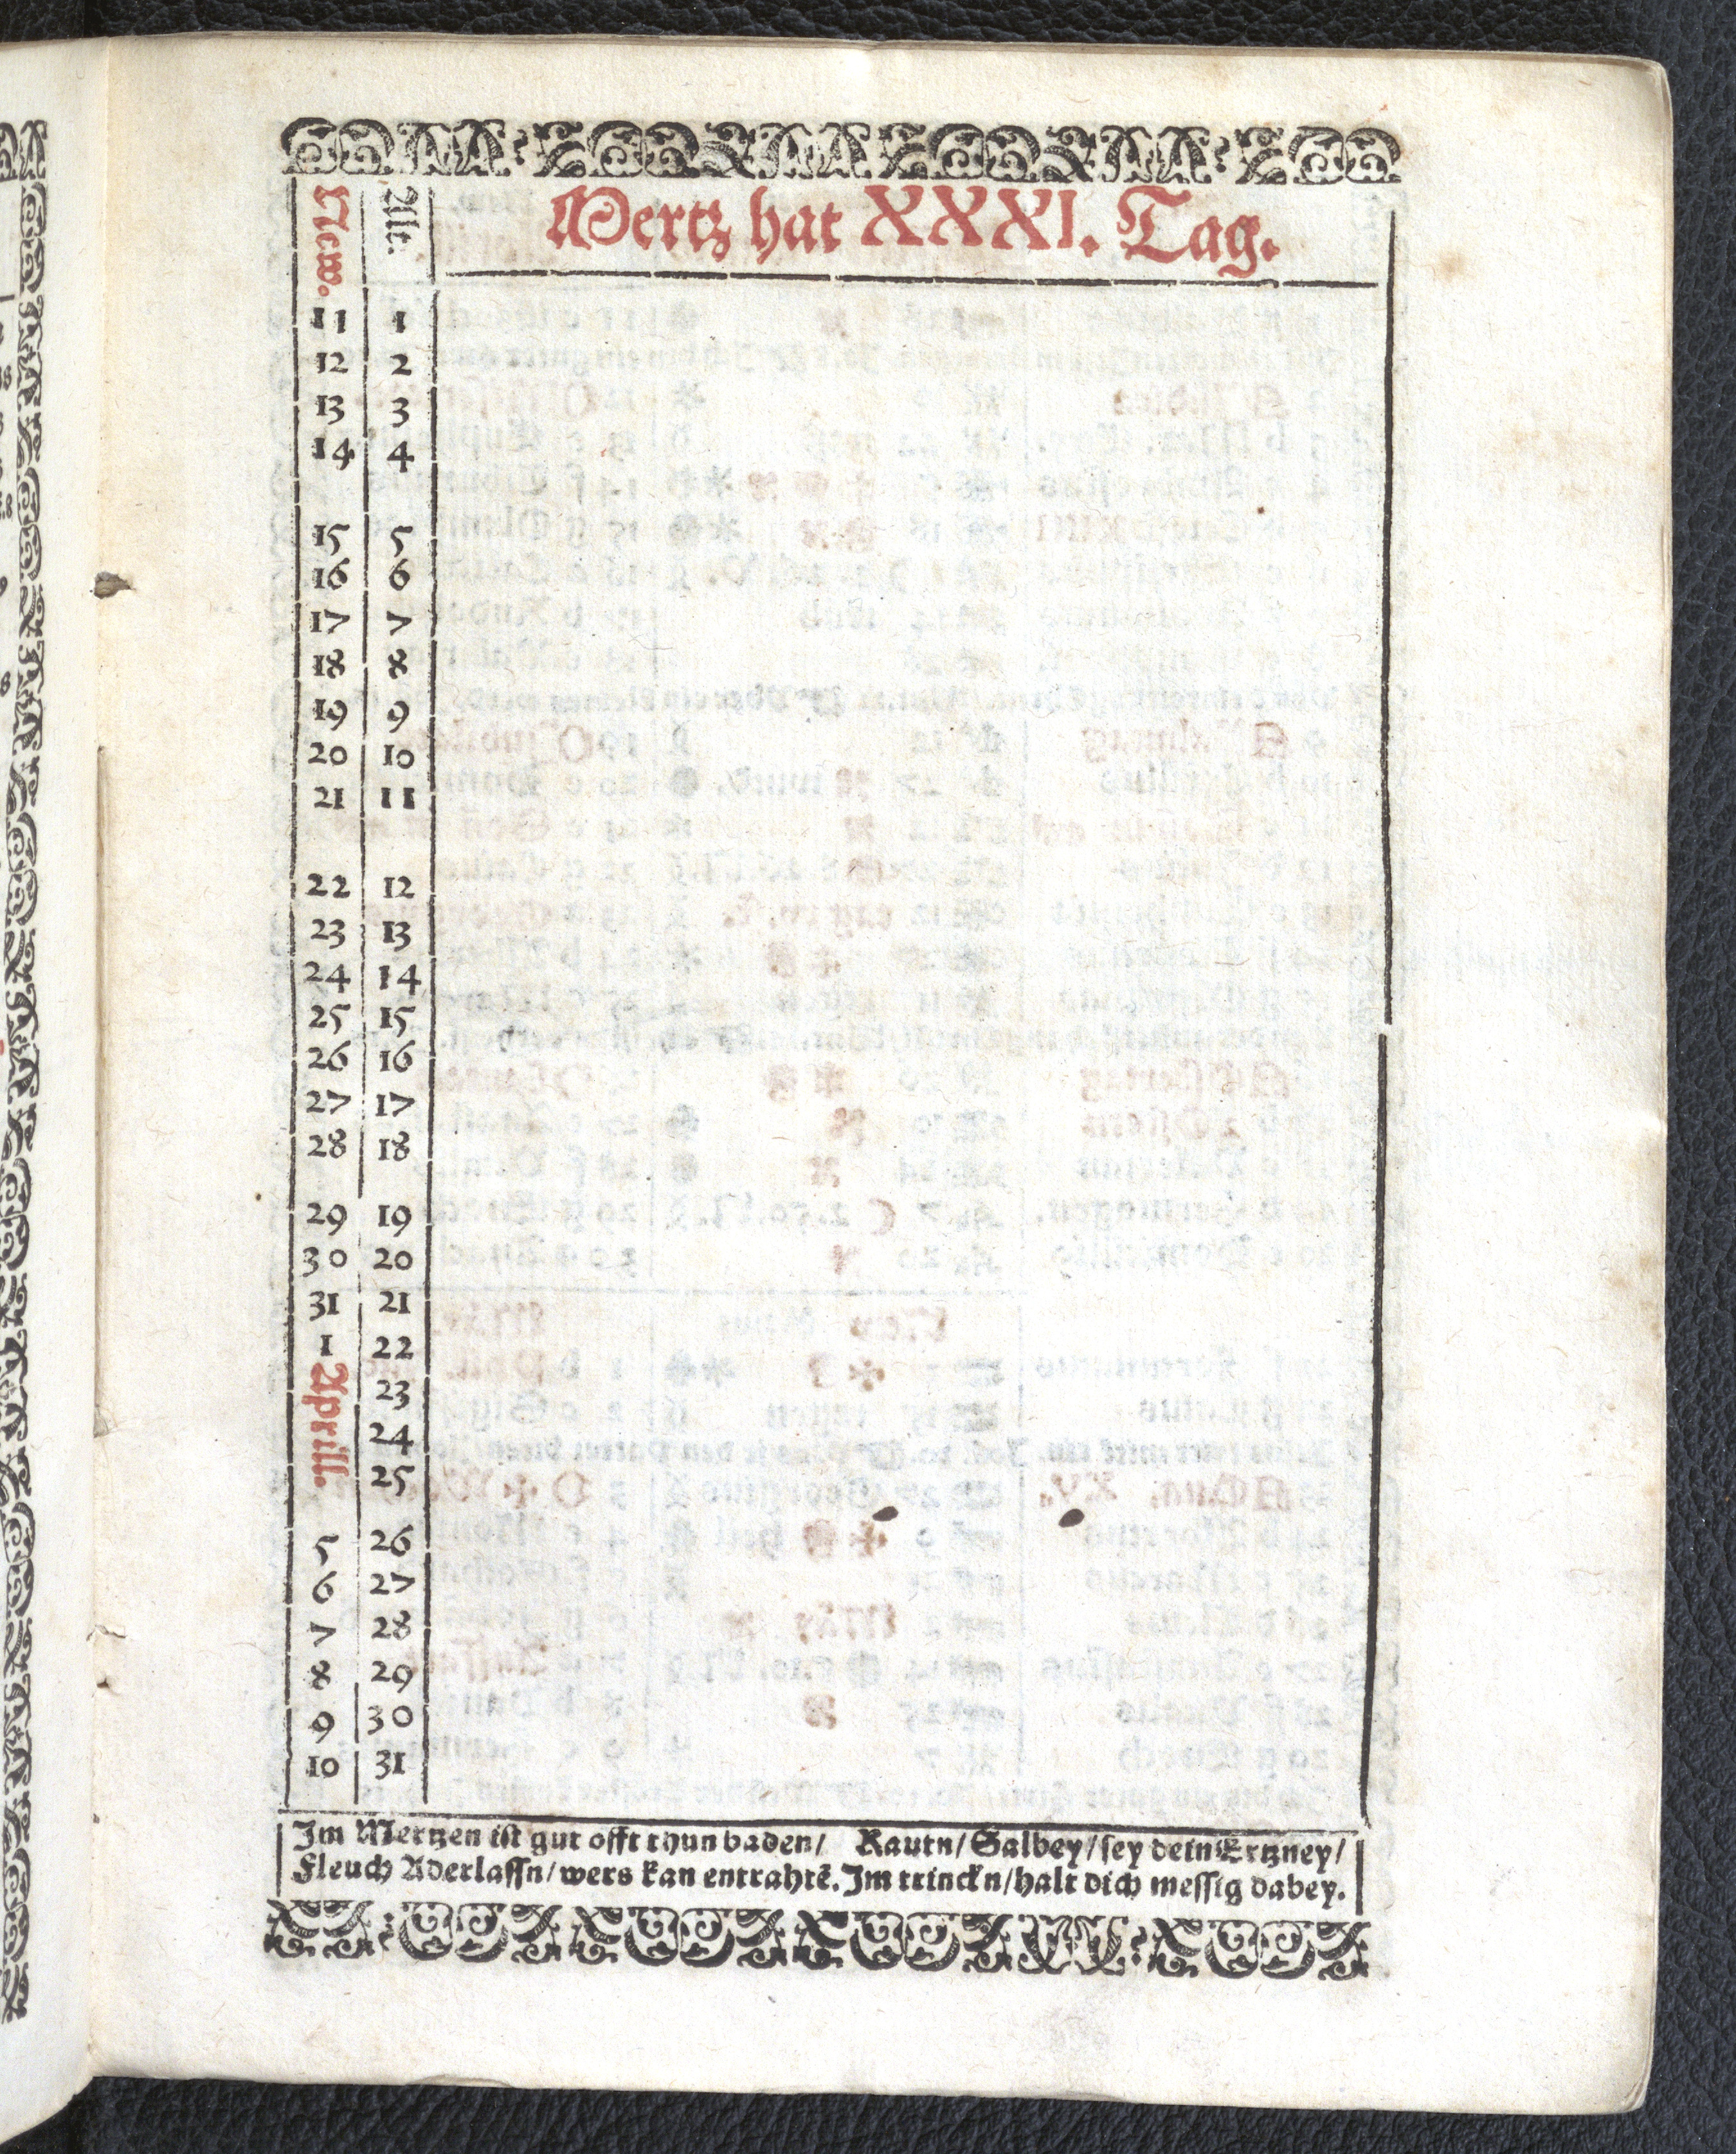 New. Alt. Mertz hat XXXI. Tag.
11 1
12 2
13 3
14 4
15 5
16 6
17 7
18 8
19 9
20 10
21 11
22 12
23 13
24 14
25 15
26 16
27 17
28 18
29 19
30 20
31 21
1 22
Aprill. 23
24
25
5 26
6 27
7 28
8 29
9 30
10 31
Im Mertzen ist gut offt thun baden/ Rautn/ Salbey/ sey dein Ertzney/
Fleuch Aderlassn/ wers kan entrahtē. Im trinckn/ halt dich messig dabey.